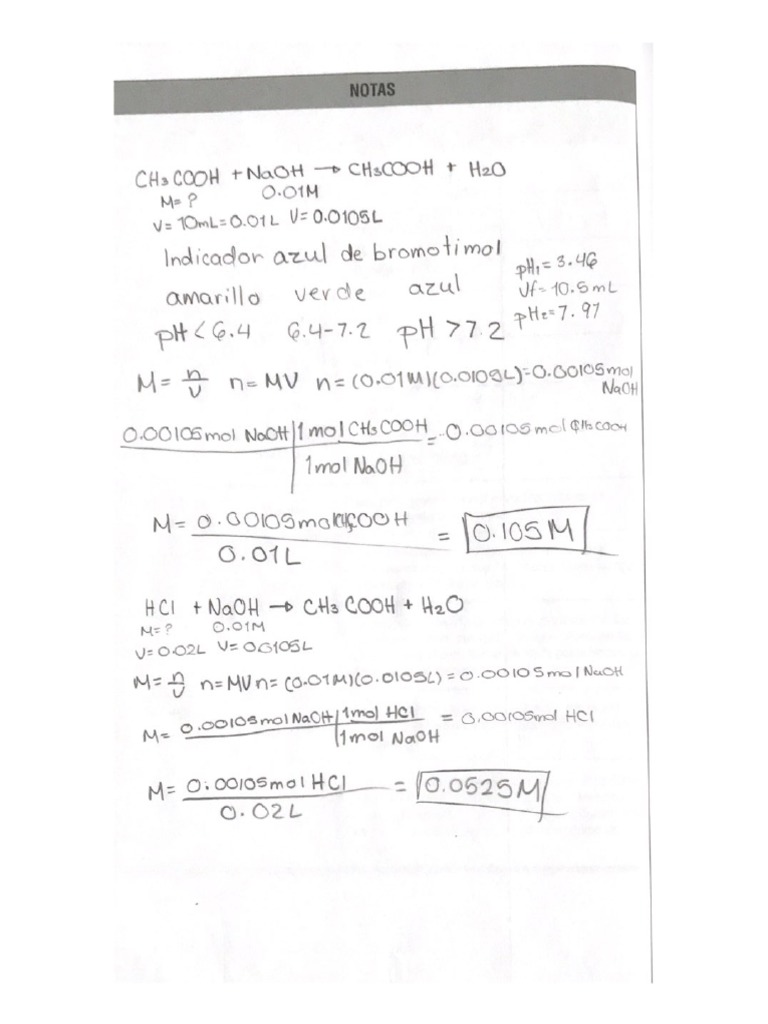 NOTAS
CH3COOH + NaOH → CH3COOH + H2O
M= ? 0.01M
V= 10mL=0.01L V= 0.0105L
Indicador azul de bromotimol
amarillo verde azul
pH<6.4 6.4-7.2 pH >7.2
pH1= 3.46
Vf= 10.5mL
pH2= 7.97
M= n/V n= MV n= (0.01M)(0.0105L)=0.00105mol NaOH
0.00105mol NaOH | 1mol CH3COOH = 0.00105mol CH3COOH
1mol NaOH
M= 0.00105mol CH3COOH = 0.105M
0.01L
HCl + NaOH → CH3COOH + H2O
M=? 0.01M
V=0.02L V= 0.0105L
M= n/V n=MV n= (0.01M)(0.0105L) = 0.00105mol NaOH
M= 0.00105mol NaOH | 1mol HCl = 0.00105mol HCl
1mol NaOH
M= 0.00105mol HCl = 0.0525M
0.02L